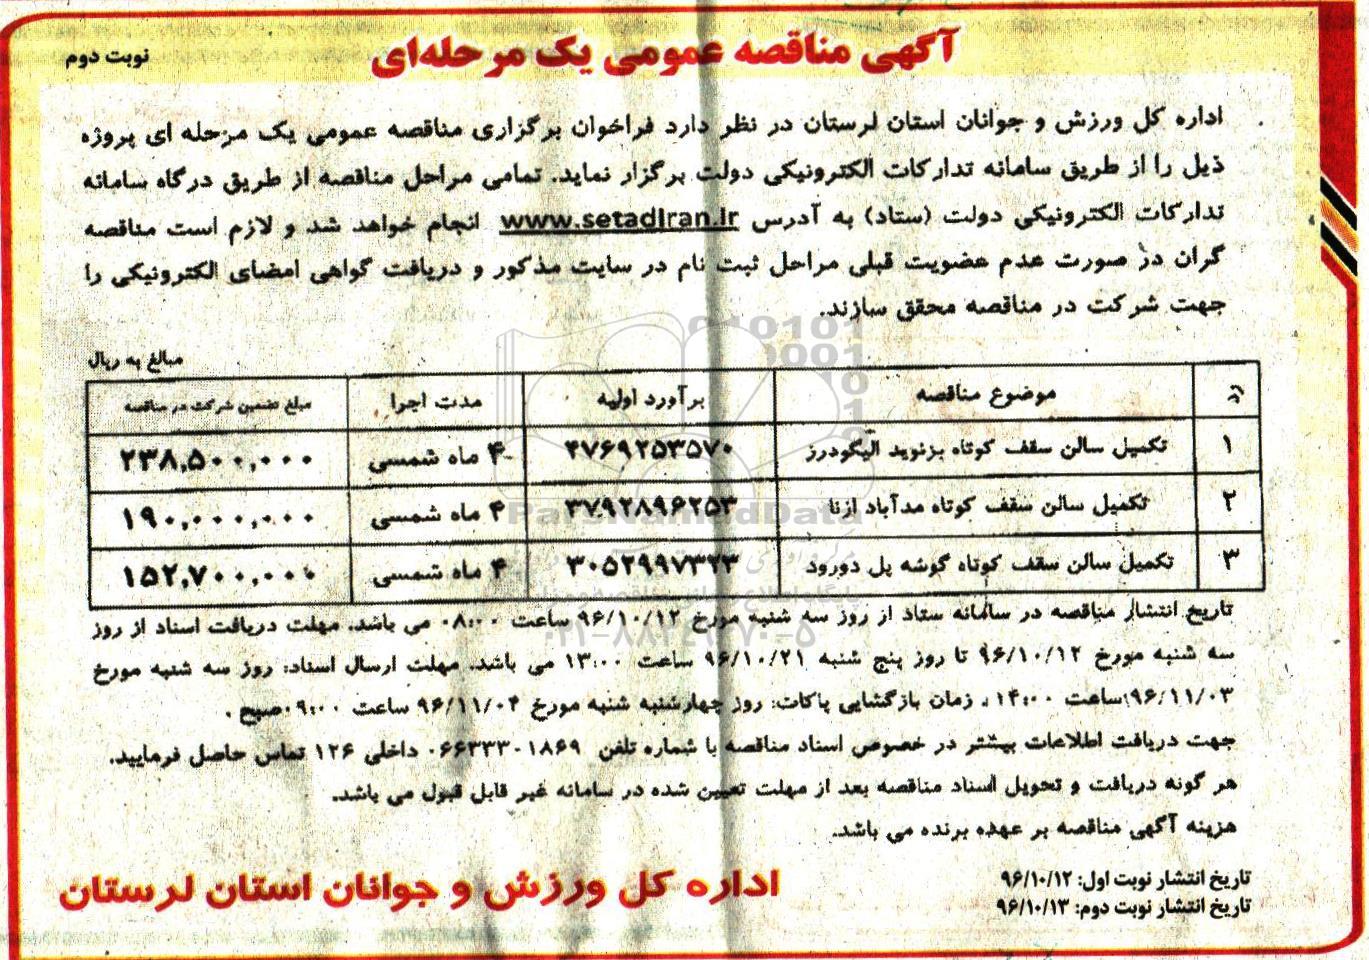 آگهی مناقصه عمومی یک مرحله‌ای
نوبت دوم
اداره کل ورزش و جوانان استان لرستان در نظر دارد فراخوان برگزاری مناقصه عمومی یک مرحله ای پروژه
ذیل را از طریق سامانه تدارکات الکترونیکی دولت برگزار نماید. تمامی مراحل مناقصه از طریق درگاه سامانه
تدارکات الکترونیکی دولت (ستاد) به آدرس www.setadIran.ir انجام خواهد شد و لازم است مناقصه
گران در صورت عدم عضویت قبلی مراحل ثبت نام در سایت مذکور و دریافت گواهی امضای الکترونیکی را
جهت شرکت در مناقصه محقق سازند.
مبالغ به ریال
موضوع مناقصه برآورد اولیه مدت اجرا مبلغ تضمین شرکت در مناقصه
۱ تکمیل سالن سقف کوتاه بزنوید الیگودرز ۴۷۶۹۲۵۳۵۷۰ ۴ ماه شمسی ۲۳۸,۵۰۰,۰۰۰
۲ تکمیل سالن سقف کوتاه مدآباد ازنا ۳۷۹۲۸۹۶۲۵۳ ۴ ماه شمسی ۱۹۰,۰۰۰,۰۰۰
۳ تکمیل سالن سقف کوتاه گوشه پل دورود ۳۰۵۲۹۹۷۳۲۳ ۴ ماه شمسی ۱۵۲,۷۰۰,۰۰۰
تاریخ انتشار مناقصه در سامانه ستاد از روز سه شنبه مورخ ۹۶/۱۰/۱۲ ساعت ۰۸:۰۰ می باشد. مهلت دریافت اسناد از روز
سه شنبه مورخ ۹۶/۱۰/۱۲ تا روز پنج شنبه ۹۶/۱۰/۲۱ ساعت ۱۳:۰۰ می باشد. مهلت ارسال اسناد: روز سه شنبه مورخ
۹۶/۱۱/۰۳ ساعت ۱۴:۰۰ . زمان بازگشایی پاکات: روز چهارشنبه شنبه مورخ ۹۶/۱۱/۰۴ ساعت ۰۹:۰۰ صبح .
جهت دریافت اطلاعات بیشتر در خصوص اسناد مناقصه با شماره تلفن ۰۶۶۳۳۳۰۱۸۶۹ داخلی ۱۲۶ تماس حاصل فرمایید.
هر گونه دریافت و تحویل اسناد مناقصه بعد از مهلت تعیین شده در سامانه غیر قابل قبول می باشد.
هزینه آگهی مناقصه بر عهده برنده می باشد.
تاریخ انتشار نوبت اول: ۹۶/۱۰/۱۲
تاریخ انتشار نوبت دوم: ۹۶/۱۰/۱۳
اداره کل ورزش و جوانان استان لرستان
ParsNamadData